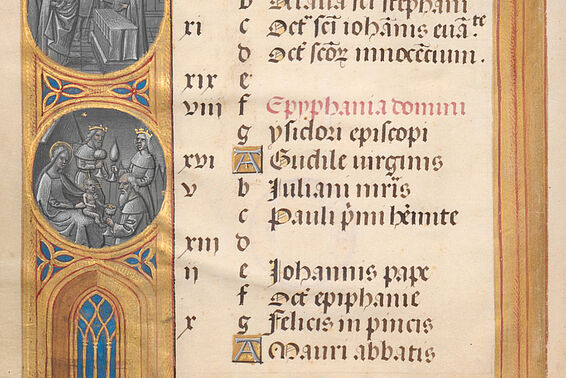 b Octaua sci stephani
xi c Oct͛ sci iohānis euā.te
d Oct͛ scoꝝ innocentium.
xix e
viii f Epyphania domini
g ysidori episcopi
xvi A Gudile uirginis
v b Juliani mr̄is
c Pauli p̄mi hēmite
xiii d
ii e Johannis pape
f Oct͛ epiphanie
x g Felicis in pincis
A Mauri abbatis